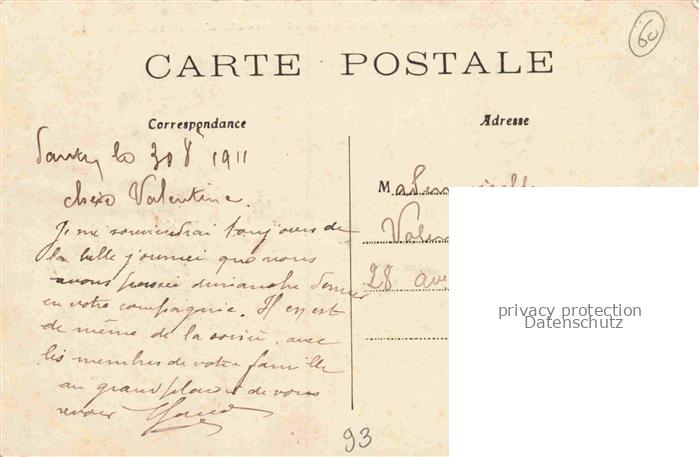 6c
CARTE POSTALE
Correspondance
Adresse
le 30 8 1911
chère Valentine.
Je me souviendrai toujours de
la belle journée que nous
avons passée dimanche dernier
en votre compagnie. Il en est
de même de la soirée, avec
les membres de votre famille
au grand plaisir de vous
revoir
Mademoiselle
28 ave
privacy protection
Datenschutz
93